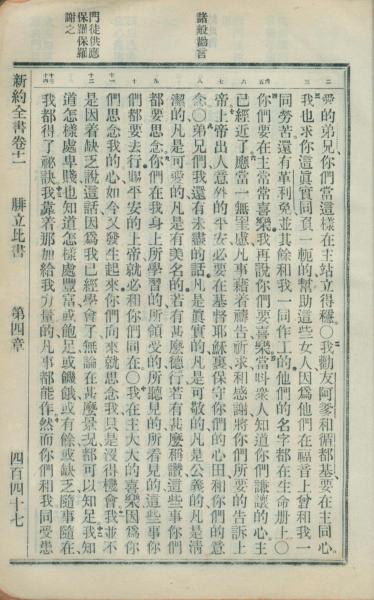 諸般勸言
門徒供應
保羅保羅
謝之
愛的弟兄們當這樣在主站立得穩〇我勸友阿爹和循都基要在主同心
我也求你這眞實同負一軛的幫助這些女人因爲他們在福音上曾和我一
同勞苦還有革利免並其餘和我一同作工的他們的名字都在生命册上〇
你們要在主常常喜樂我再說你們要喜樂當呌衆人知道你們謙讓的心主
已經近了應當一無罣慮凡事藉着禱吿祈求和感謝將你們所要的吿訴上
帝上帝出人意外的平安必要在基督耶穌裏保守你們的心田和你們的意
念〇弟兄們我還有未盡的話凡是眞實的凡是可敬的凡是公義的凡是淸
潔的凡是可愛的凡是有美名的若有甚麽德行若有甚麽稱讚這些事你們
都要思念你們在我身上所學習的所領受的所聽見的所看見的這些事你
們都要去行賜平安的上帝就必和你們同在〇我在主大大的喜樂因爲你
們思念我的心如今又發生起來你們向來就思念我只是沒得機會我並不
是因着缺乏說這話因爲我已經學會了無論在甚麽景况都可以知足我知
道怎樣處卑賤也知道怎樣處豐富或飽足或饑餓或有餘或缺乏隨事隨在
我都得了祕訣我靠着那加給我力量的凡事都能作然而你們和我同受患
新約全書卷十一 腓立比書 第四章 四百四十七